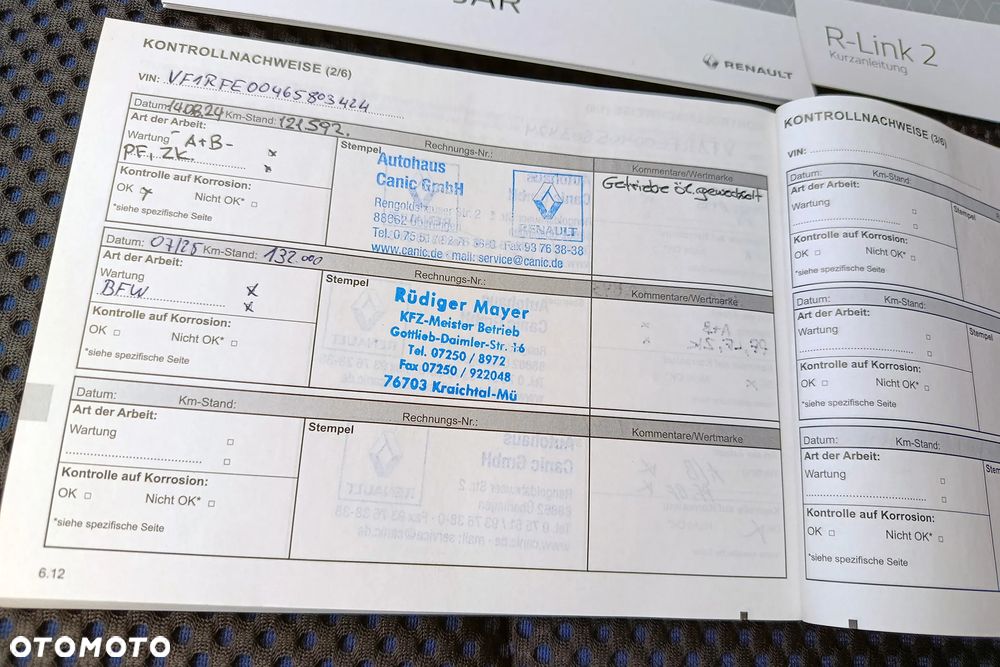 JAR
RENAULT
R-Link 2
Kurzanleitung
KONTROLLNACHWEISE (2/6)
VIN: VF1RFE00465803424
Datum: 14.08.24 Km-Stand: 121.592.
Art der Arbeit:
Wartung A+B-
PF, ZK.
Kontrolle auf Korrosion:
OK Nicht OK*
*siehe spezifische Seite
Rechnungs-Nr.:
Stempel
Autohaus
Canic GmbH
Rengoldshauser Str. 2
88662 Überlingen
RENAULT
Fax 93 76 38-38
www.canic.de - mail: service@canic.de
Kommentare/Wertmarke
Getriebe öl gewechselt
Datum: 07/25 Km-Stand: 132.000
Art der Arbeit:
Wartung
BFW
Kontrolle auf Korrosion:
OK Nicht OK*
*siehe spezifische Seite
Rechnungs-Nr.:
Stempel
Rüdiger Mayer
KFZ-Meister Betrieb
Gottlieb-Daimler-Str. 16
Tel. 07250 / 8972
Fax 07250 / 922048
76703 Kraichtal-Mü
Kommentare/Wertmarke
Datum: Km-Stand:
Art der Arbeit:
Wartung
Kontrolle auf Korrosion:
OK Nicht OK*
*siehe spezifische Seite
Rechnungs-Nr.:
Stempel
Kommentare/Wertmarke
6.12
KONTROLLNACHWEISE (3/6)
VIN:
Datum: Km-Stand:
Art der Arbeit:
Wartung
Kontrolle auf Korrosion:
OK Nicht OK*
*siehe spezifische Seite
Stempel
Datum: Km-Stand:
Art der Arbeit:
Wartung
Kontrolle auf Korrosion:
OK Nicht OK*
*siehe spezifische Seite
Stempel
Datum: Km-Stand:
Art der Arbeit:
Wartung
Kontrolle auf Korrosion:
OK Nicht OK*
*siehe spezifische Seite
Stem
OTOMOTO